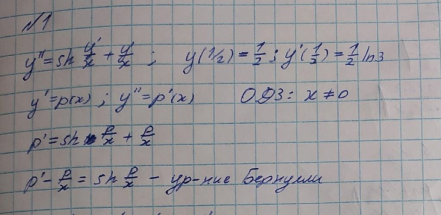 №1
y'' = sh y'/x + y'/x ; y(1/2) = 1/2 ; y'(1/2) = 1/2 ln3
y' = p(x) ; y'' = p'(x) ОДЗ: x ≠ 0
p' = sh p/x + p/x
p' - p/x = sh p/x - ур-ние Бернулли